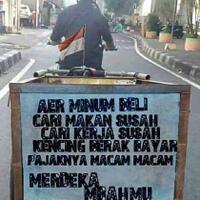 AER MINUM BELI
CARI MAKAN SUSAH
CARI KERJA SUSAH
KENCING BERAK BAYAR
PAJAKNYA MACAM MACAM
MERDEKA
MBAHMU